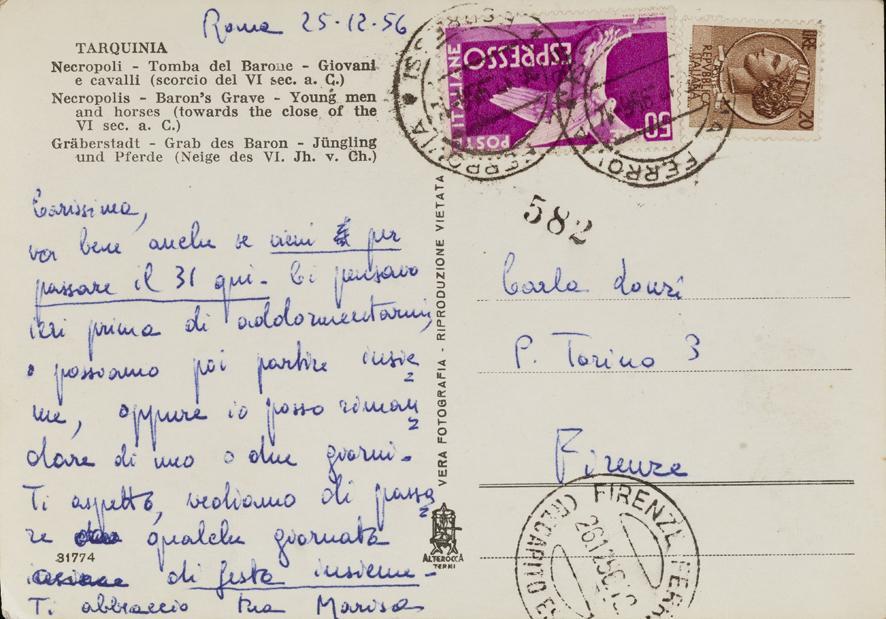 Roma 25-12-56
TARQUINIA
Necropoli - Tomba del Barone - Giovani
e cavalli (scorcio del VI sec. a. C.)
Necropolis - Baron's Grave - Young men
and horses (towards the close of the
VI sec. a. C.)
Gräberstadt - Grab des Baron - Jüngling
und Pferde (Neige des VI. Jh. v. Ch.)
Carissima,
va bene anche se vieni per
passare il 31 qui. Ci pensavo
ieri prima di addormentarmi,
o possiamo poi partire insie
me, oppure io posso riman
dare di uno o due giorni.
Ti aspetto, vediamo di passa
re qualche giornata
di festa insieme.
Ti abbraccio tua Marisa
31774
VERA FOTOGRAFIA - RIPRODUZIONE VIETATA
ALTEROCCA
TERNI
POSTE ITALIANE
ESPRESSO
50
REPVBBLICA
ITALIANA
LIRE 20
582
Carla Lonzi
P. Torino 3
Firenze
FIRENZE FERR